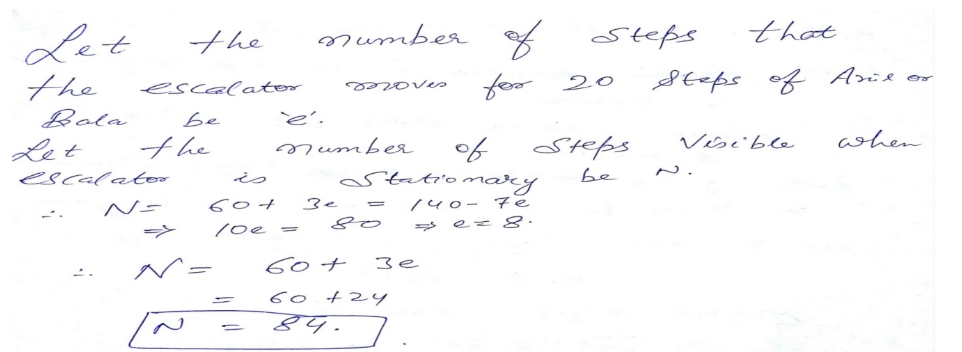 Let the number of steps that
the escalator moves for 20 steps of Arie or
Bala be 'e'.
Let the number of steps visible when
escalator is stationary be N.
∴ N = 60 + 3e = 140 - 7e
⇒ 10e = 80 ⇒ e = 8.
∴ N = 60 + 3e
= 60 + 24
N = 84.